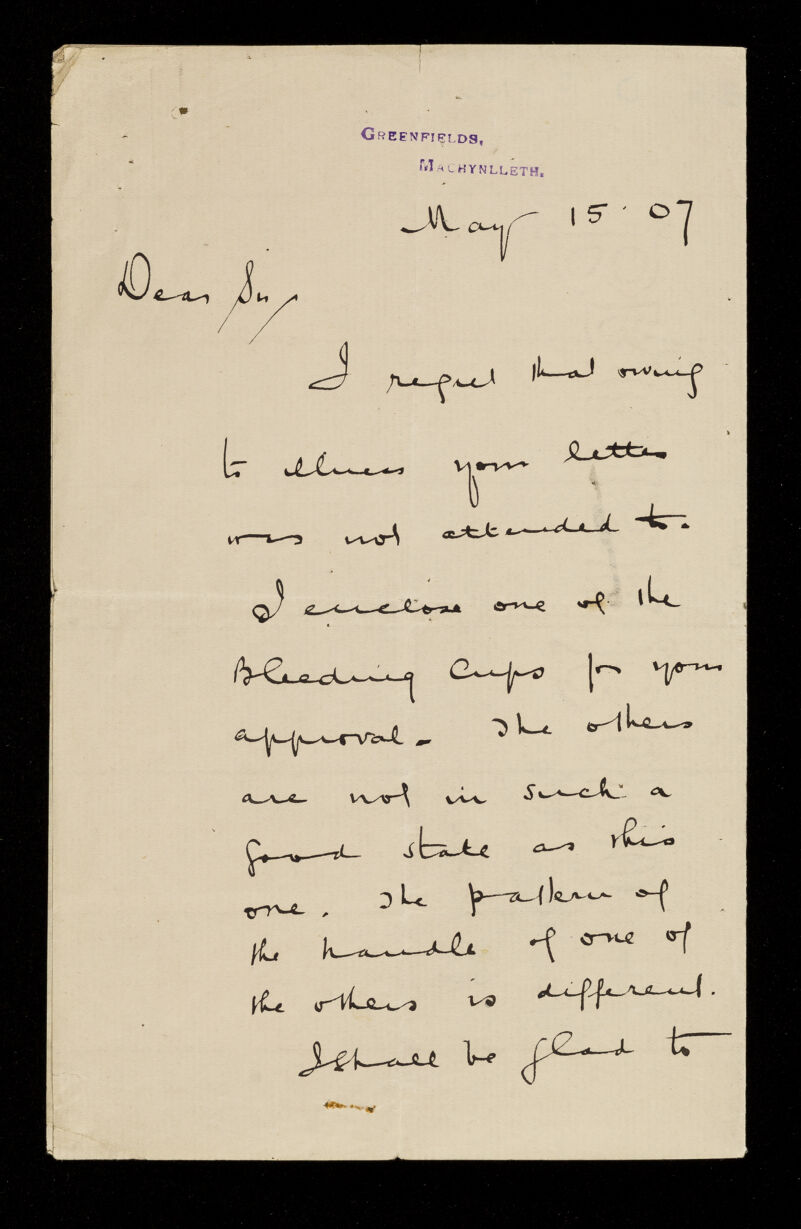 GREENFIELDS,
MACHYNLLETH.
May 15. 07
Dear Sir,
I regret that owing
to illness your letter
was not attended to.
I enclose one of the
Bleeding Cups for your
approval. The others
are not in such a
good state as this
one. The pattern of
the handle of one of
the others is different.
I shall be glad to